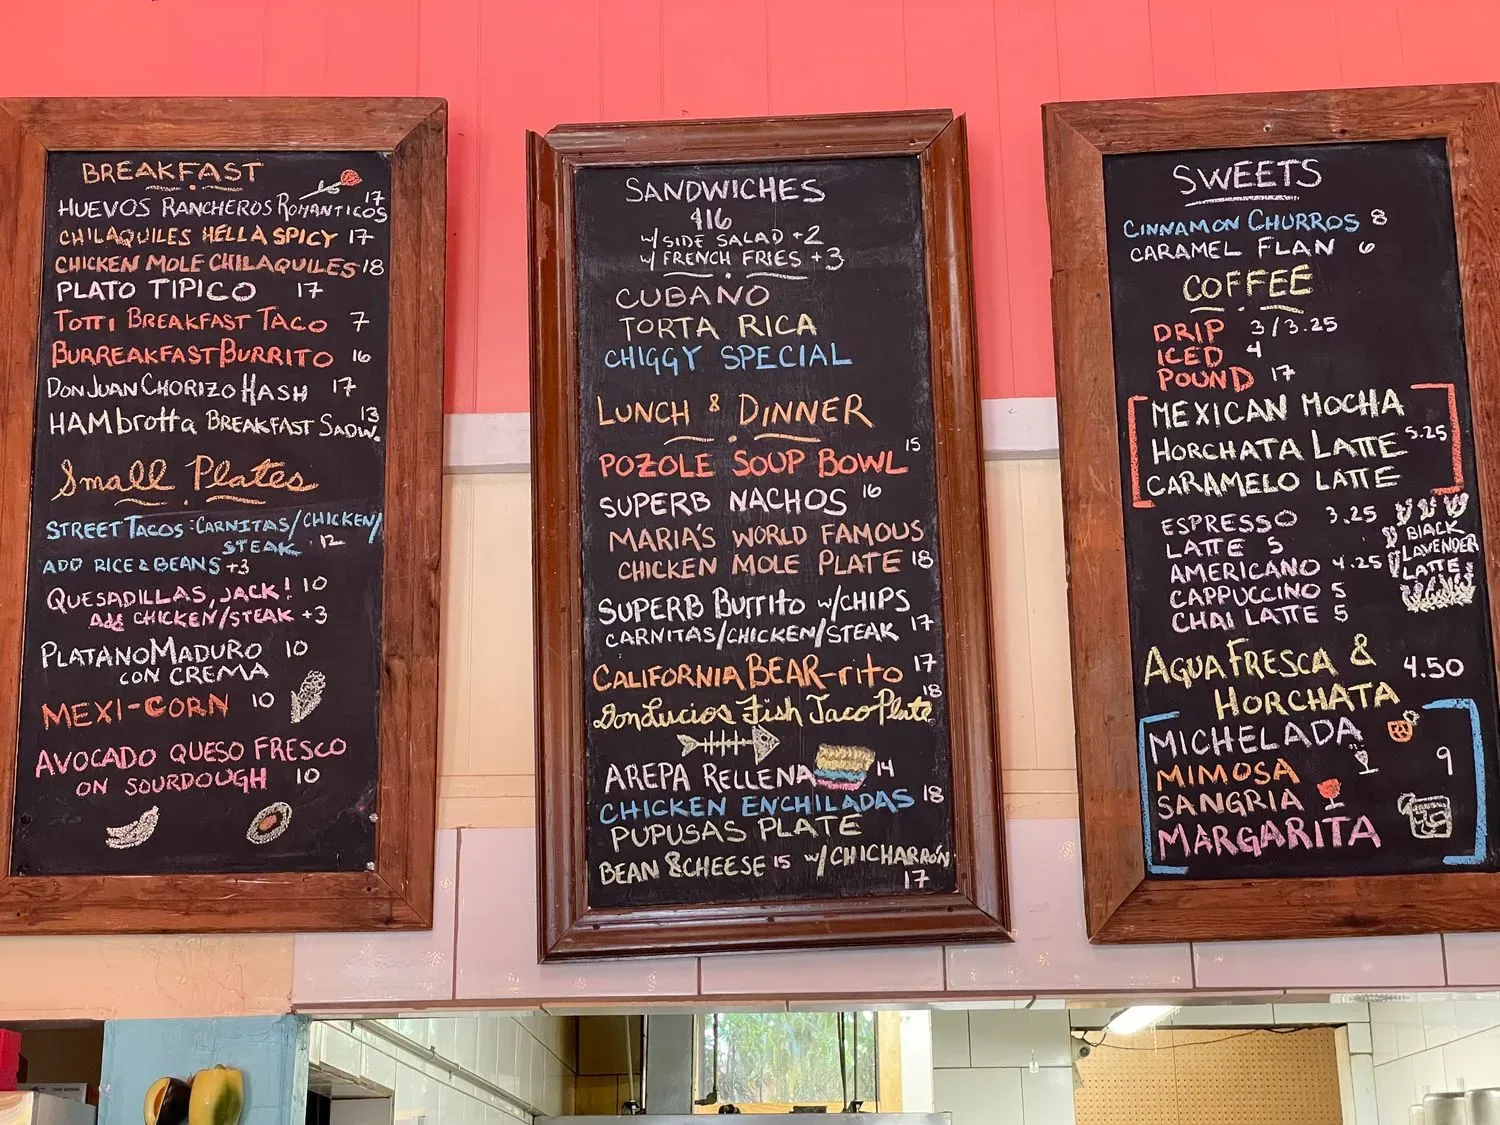 BREAKFAST
HUEVOS RANCHEROS ROMANTICOS 17
CHILAQUILES HELLA SPICY 17
CHICKEN MOLE CHILAQUILES 18
PLATO TIPICO 17
TOTTI BREAKFAST TACO 7
BURREAKFAST BURRITO 16
DON JUAN CHORIZO HASH 17
HAMbrotta BREAKFAST SADW. 13
Small Plates
STREET TACOS: CARNITAS/CHICKEN/
STEAK 12
ADD RICE & BEANS +3
QUESADILLAS, JACK! 10
Add CHICKEN/STEAK +3
PLATANO MADURO 10
CON CREMA
MEXI-CORN 10
AVOCADO QUESO FRESCO
ON SOURDOUGH 10
SANDWICHES
$16
w/ SIDE SALAD +2
w/ FRENCH FRIES +3
CUBANO
TORTA RICA
CHIGGY SPECIAL
LUNCH & DINNER
POZOLE SOUP BOWL 15
SUPERB NACHOS 16
MARIA'S WORLD FAMOUS
CHICKEN MOLE PLATE 18
SUPERB BURRITO w/CHIPS
CARNITAS/CHICKEN/STEAK 17
CALIFORNIA BEAR-rito 17
Don Lucios Fish Taco Plate 18
AREPA RELLENA 14
CHICKEN ENCHILADAS 18
PUPUSAS PLATE
BEAN & CHEESE 15 w/CHICHARRÓN
17
SWEETS
CINNAMON CHURROS 8
CARAMEL FLAN 6
COFFEE
DRIP 3/3.25
ICED 4
POUND 17
MEXICAN MOCHA
HORCHATA LATTE 5.25
CARAMELO LATTE
ESPRESSO 3.25
LATTE 5
AMERICANO 4.25
CAPPUCCINO 5
CHAI LATTE 5
BLACK
LAVENDER
LATTE
AGUA FRESCA & 4.50
HORCHATA
MICHELADA
MIMOSA 9
SANGRIA
MARGARITA